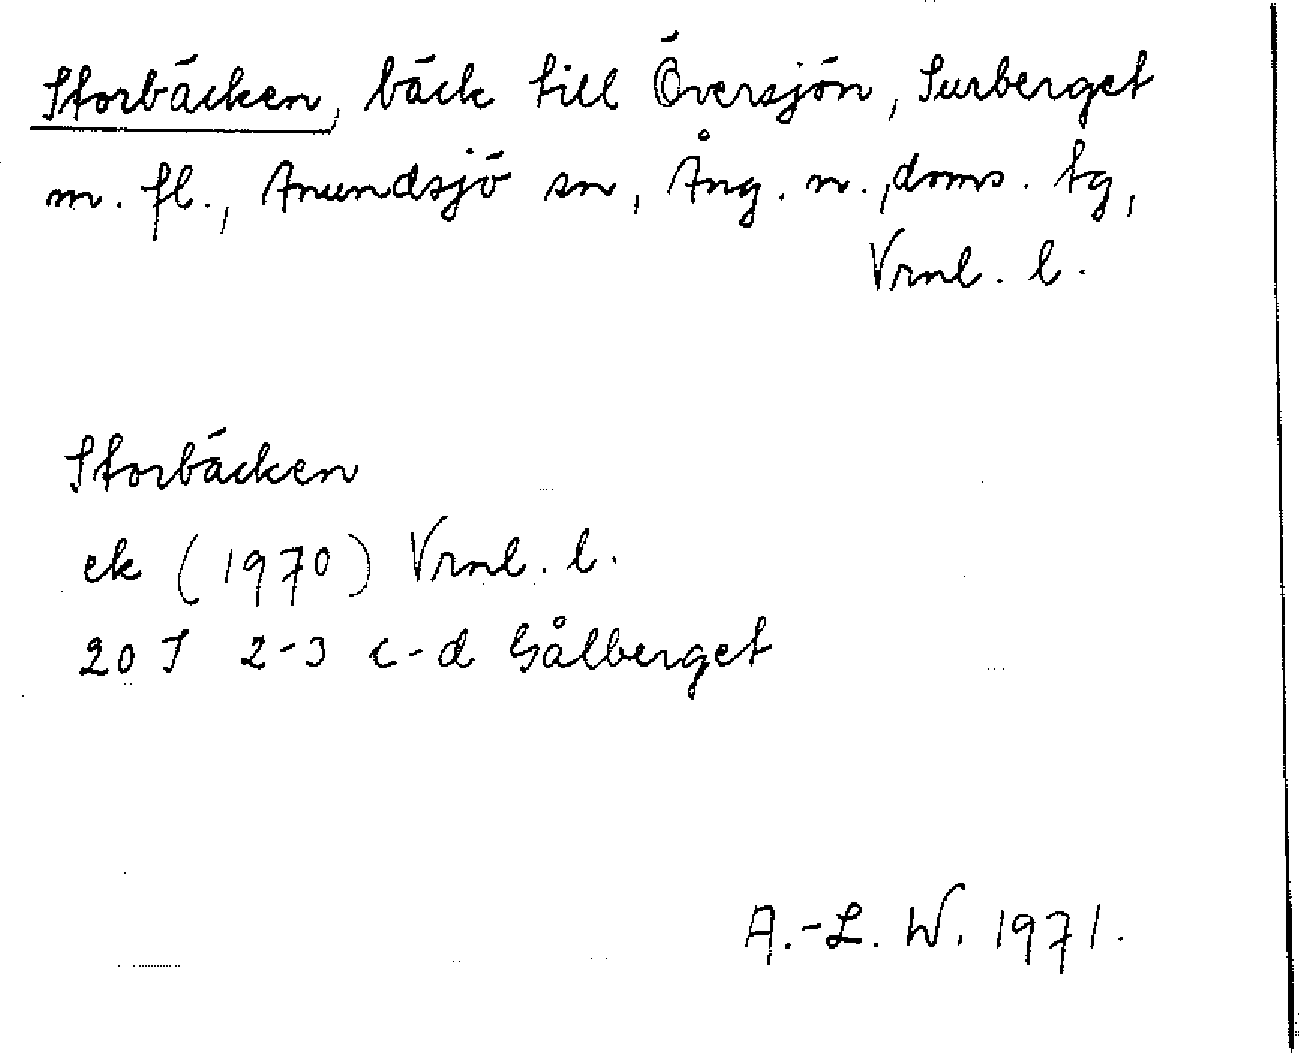 Storbäcken, bäck till Översjön, Surberget
m. fl., Anundsjö sn, Ång. n., doms. tg,
Vrml. l.
Storbäcken
ek (1970) Vrml. l.
20 I 2-3 c-d Gålberget
A.-L. W. 1971.